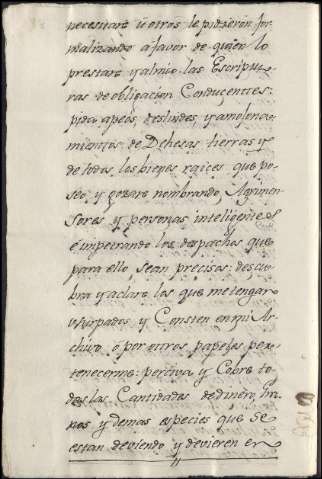 necesitare ù otros le pidieren for
malizando a favor de quien lo
prestare y almio las Escriptu
ras de obligacion Conducentes:
pida apeos, deslindes, y amojona
mientos de Dehesas, tierras y
de todos los bienes raices que po=
seo, y gozare nombrando, Agrimen
sores y personas inteligentes
è impetrando los despachos que
para ello sean precisos: descu
bra y aclare los que me tengan
usurpados y Consten en mi Ar
chivo ò por otros papeles per
tenecerme: perciva y Cobre to
das las Cantidades de dinero, gra
nos y demas especies que se
estan deviendo y devieren en